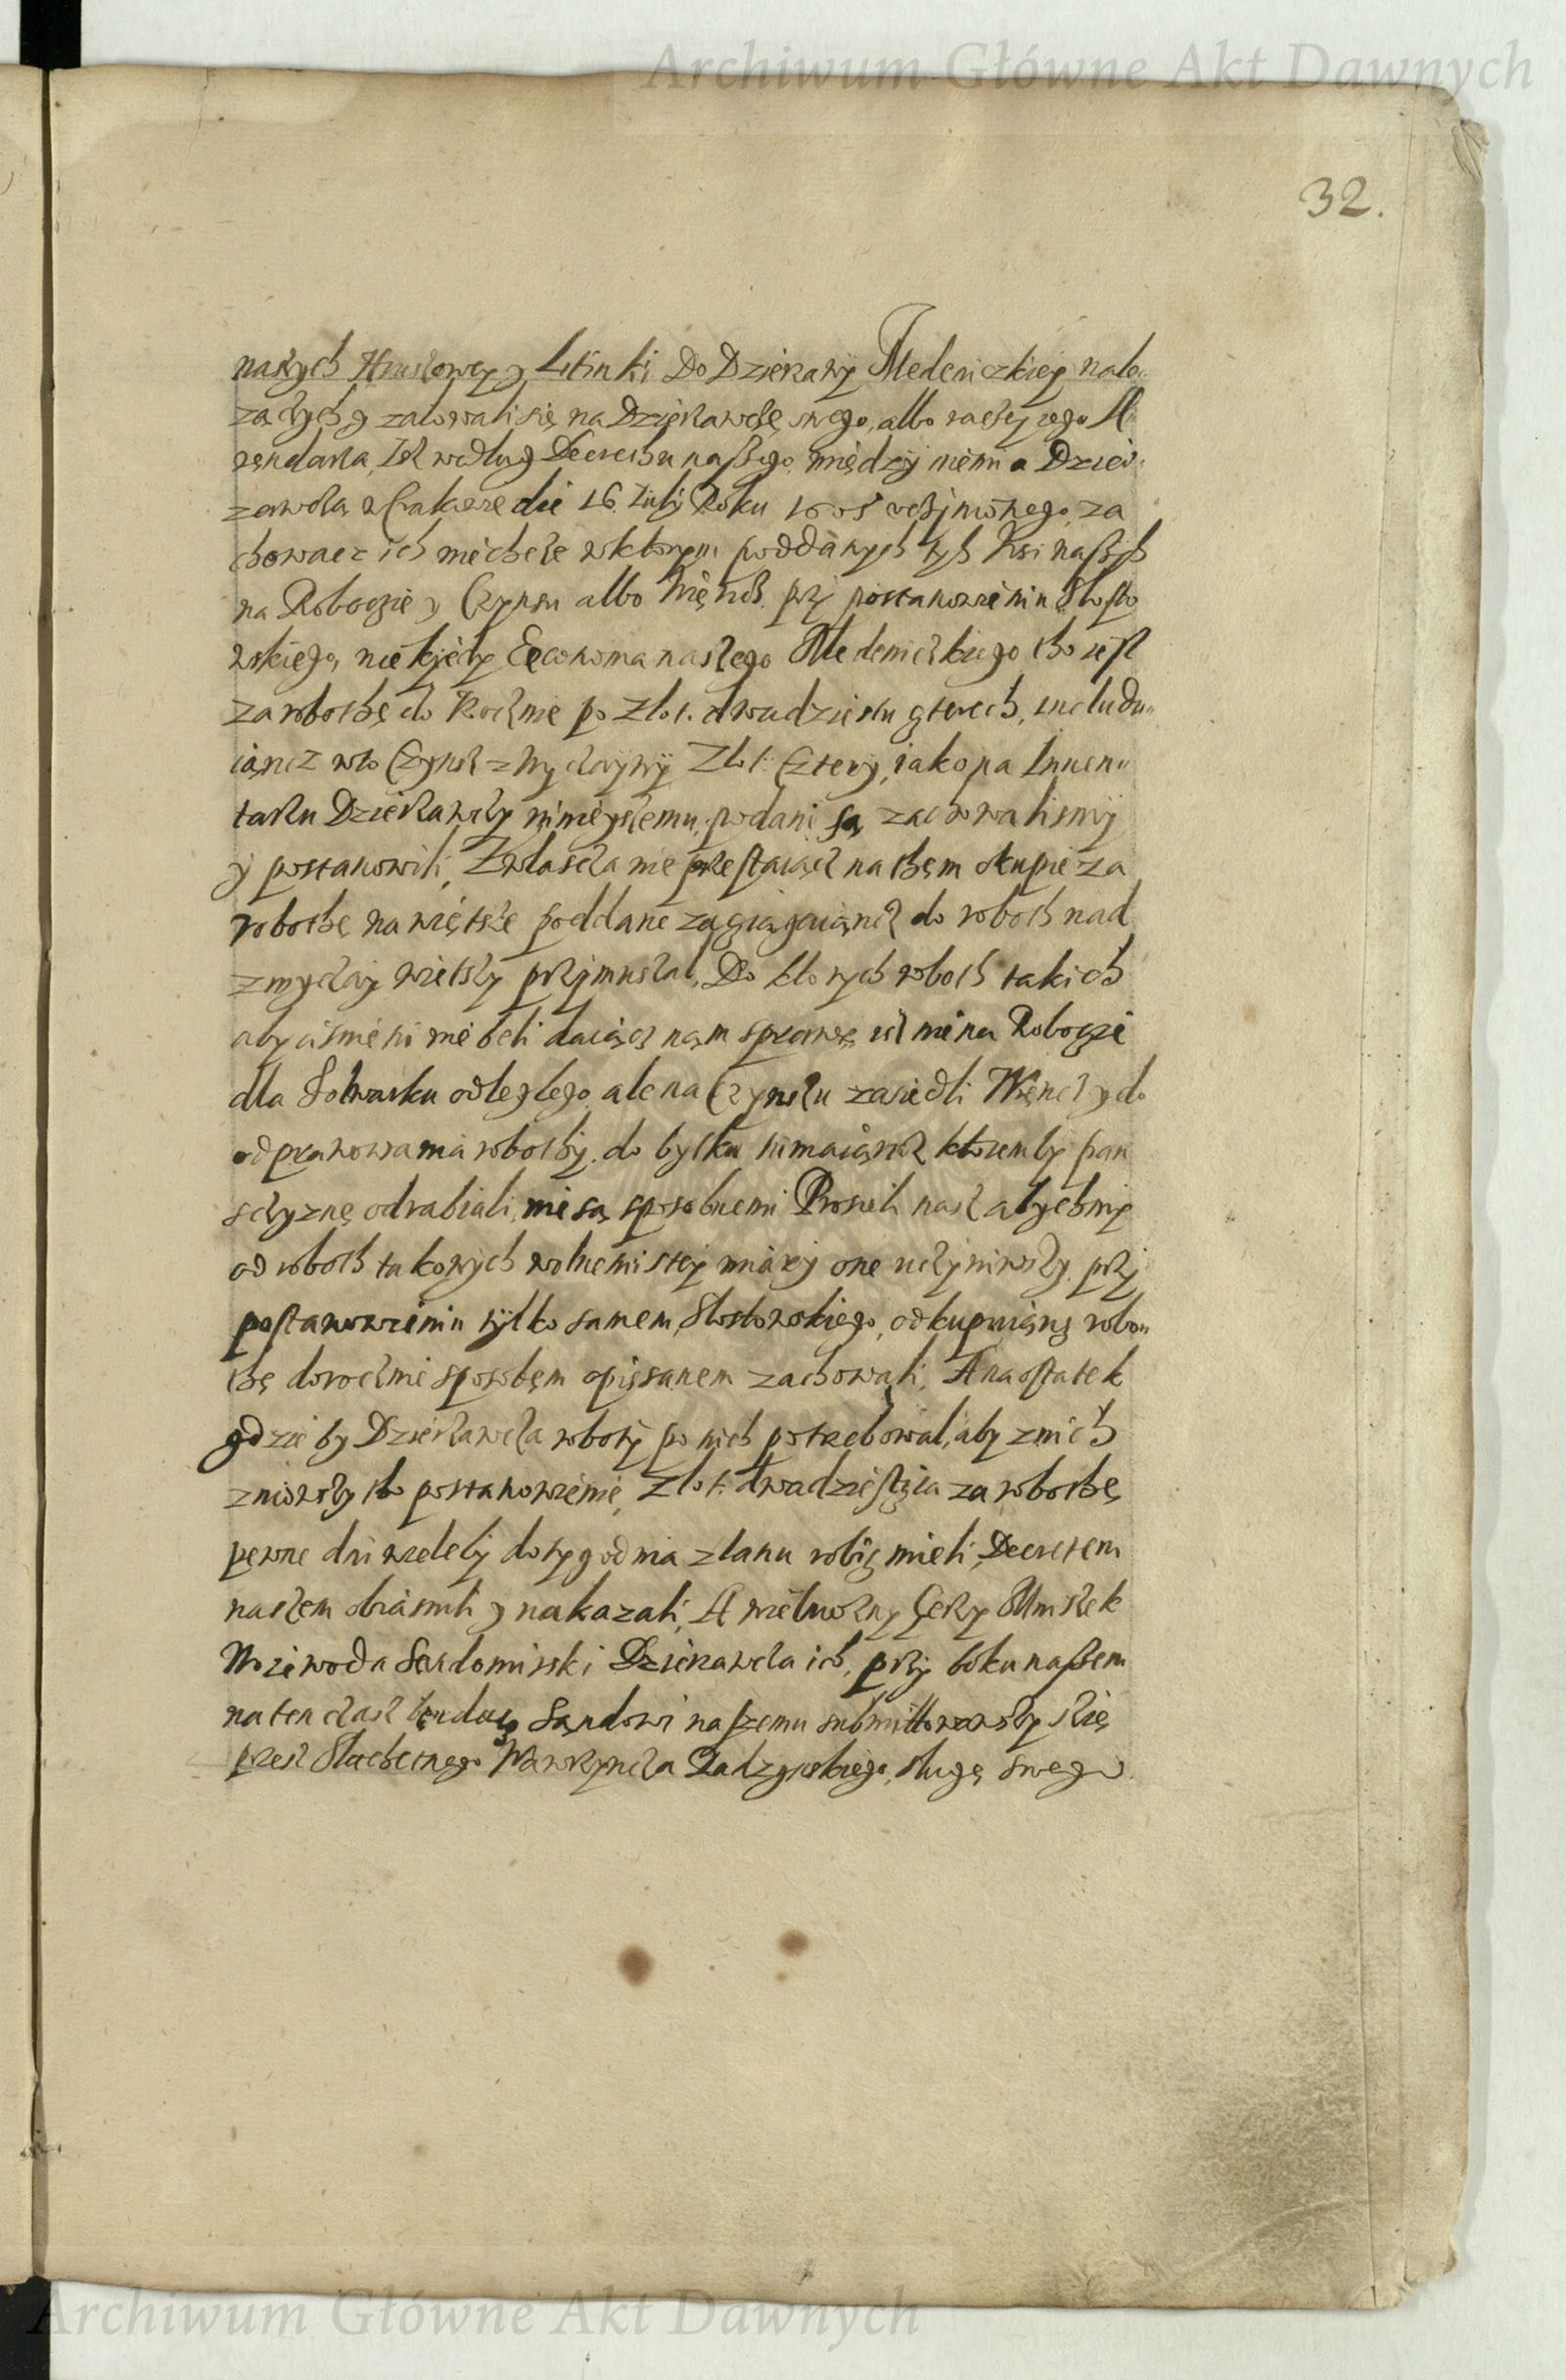 Archiwum Główne Akt Dawnych
32.
naszych y Litinki Do Dzierzawy Medeniczkiey nale„
zączych y zalowali się na Dzierzawczę swego, albo raczey iego A„
rendarza, Isz według Decrethu naszego, między niemi a Dzier„
zawczą w Crakowie die 16 Iulij Roku 1605 uczynionego, za
chowacz ich niechcze wktorym poddanych tych Wsi naszych
na Roboczie y Czynszu albo przy postanowieniu Słosto
wskiego, niekiedy Economa naszego Medeniczkiego tho iest
za robothę do Rocznie po Zlot. dwudziestu czterech, includu„
iąncz wto Czynsz zwyczayny Zlot. Cztery, iako na Inuen„
tarzu Dzierzawczy ninieyszemu, podani są zachowalismy
y postanowili, Zwlascza nie przestaiącz na them okupie za
robothę nawiętsze poddane zaciągaiąncz do roboth nad
zwyczay wietszy przymuszal, Do ktorych roboth takich
aby cisnieni nie beli daiącz nam sprawę isz nie na Roboczie
dla Folwarku odległego ale na Czynszu zasiedli y do
odprawowania robothy do bytku nimaiąncz ktoremby pan
sczyznę odrabiali, nie są sposobnemi Prosili nasz abychmy
od roboth takowych wolnemi stey miary one uczyniwszy przy
postanowieniu tylko samem Słostowskiego, odkupuiąncz robo„
thę dorocznie sposobem opissanem zachowali, A na ostatek
gdzie by Dzierzawcza roboty po nich potrzebowal, aby znich
zniowszy tho postanowienie, Zlot. dwadziescia za robothę
pewne dni wieleby do tygodnia zlanu robic mieli, Decretem
naszem obiasnili y nakazali, A wielmozny Jerzy Mniszek
Woiewoda Sendomirski Dzierzawcza ich, przy boku naszem
na ten czasz bendącz Sąndowi naszemu submittowawszy się
przesz Slachetnego Wawrzyncza sługę swego
Archiwum Główne Akt Dawnych